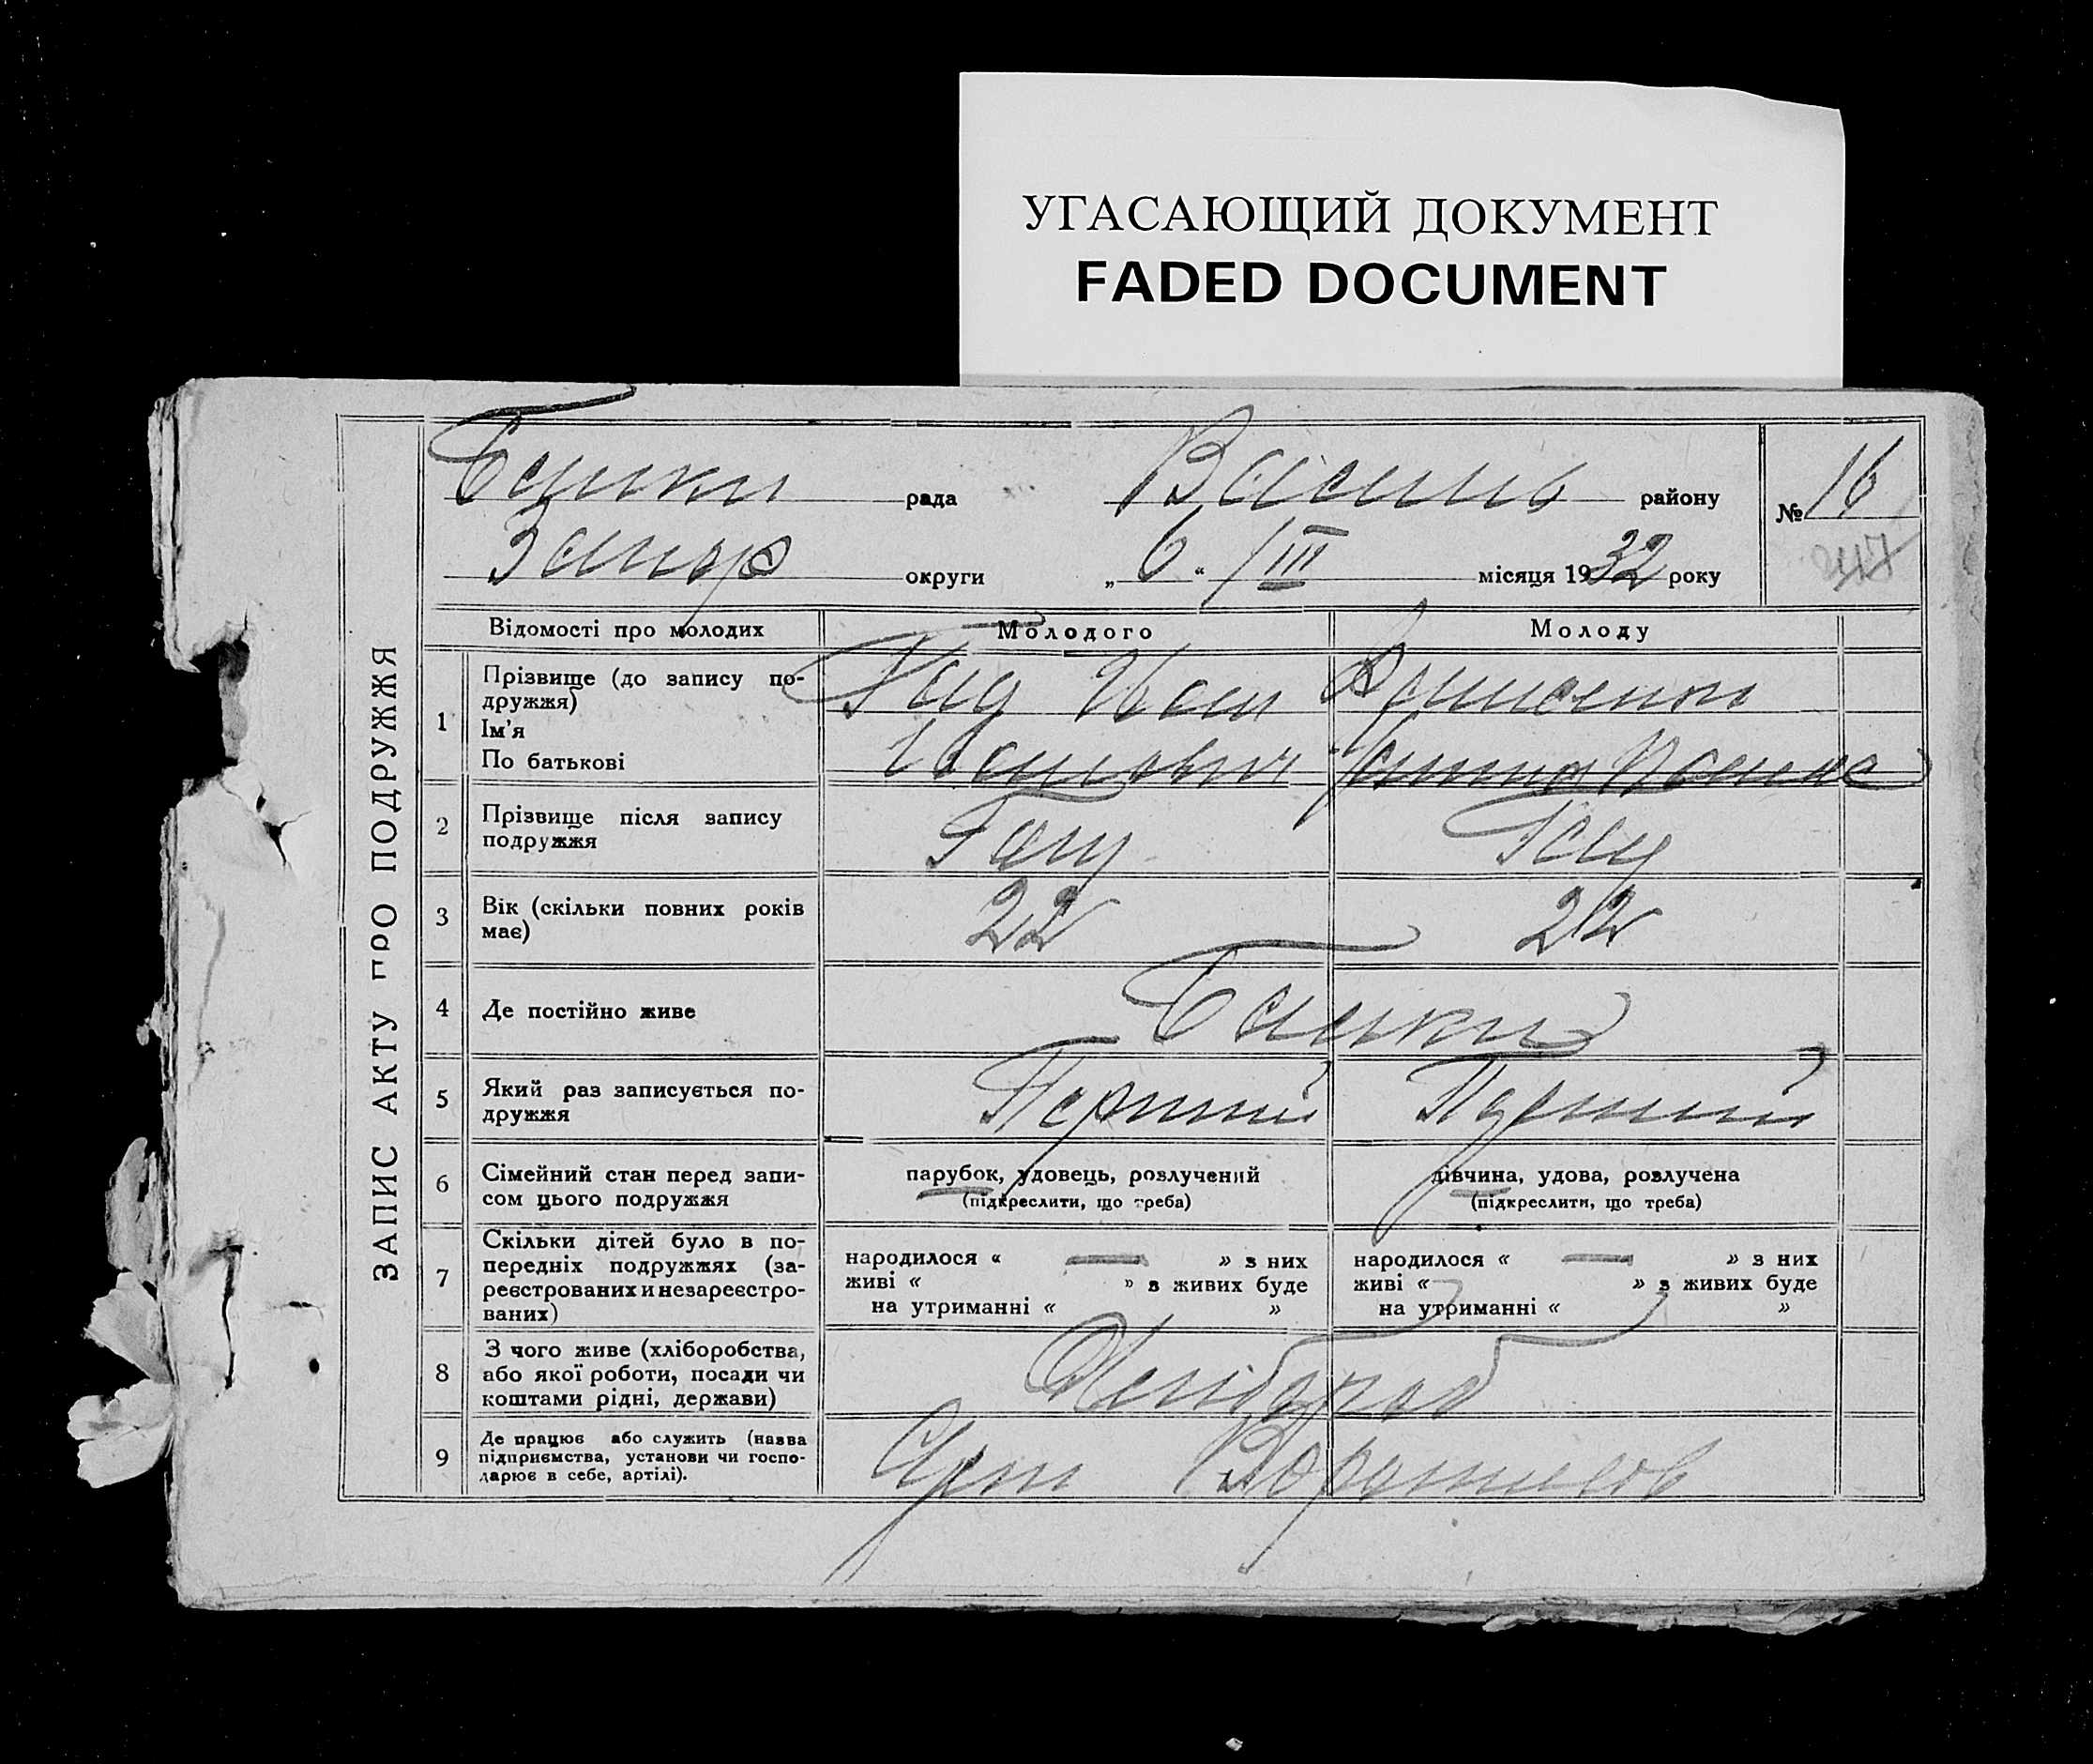 УГАСАЮЩИЙ ДОКУМЕНТ
FADED DOCUMENT
ЗАПИС АКТУ ПРО ПОДРУЖЖЯ
рада
району
№ 16
Запор округи
„ 6 “ / III місяця 1932 року
Відомості про молодих
Молодого
Молоду
1
Прізвище (до запису по-
дружжя)
Ім'я
По батькові
2
Прізвище після запису
подружжя
3
Вік (скільки повних років
має)
22
22
4
Де постійно живе
5
Який раз записується по-
дружжя
Перший
Перший
6
Сімейний стан перед запи-
сом цього подружжя
парубок, удовець, розлучений
(підкреслити, що треба)
дівчина, удова, розлучена
(підкреслити, що треба)
7
Скільки дітей було в по-
передніх подружжях (за-
реєстрованих и незареєстро-
ваних)
народилося « — » з них
живі « » з живих буде
на утриманні « »
народилося « — » з них
живі « » з живих буде
на утриманні « »
8
З чого живе (хліборобства,
або якої роботи, посади чи
коштами рідні, держави)
Хлібороб
9
Де працює або служить (назва
підприємства, установи чи госпо-
дарює в себе, артілі).
Арт Ворошилов